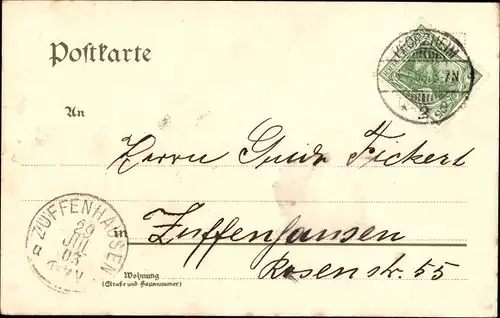 Postkarte
PFORZHEIM
7N
2
An
Herrn Guido Fickert
ZUFFENHAUSEN
JUL
03
in Zuffenhausen
Rosenstr. 55
Wohnung
(Straße und Hausnummer)